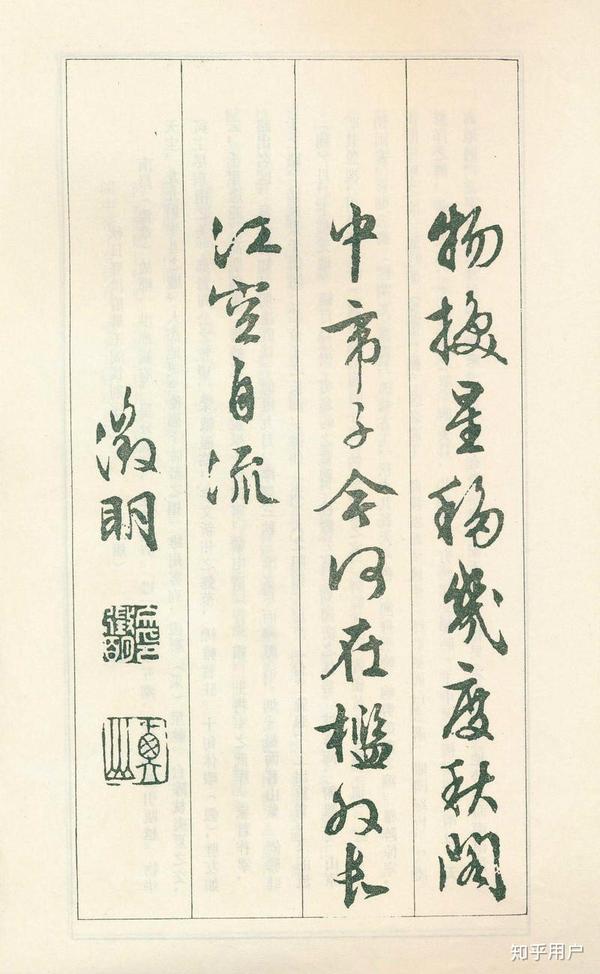 物换星移几度秋阁
中帝子今何在槛外长
江空自流
徵明
知乎用户